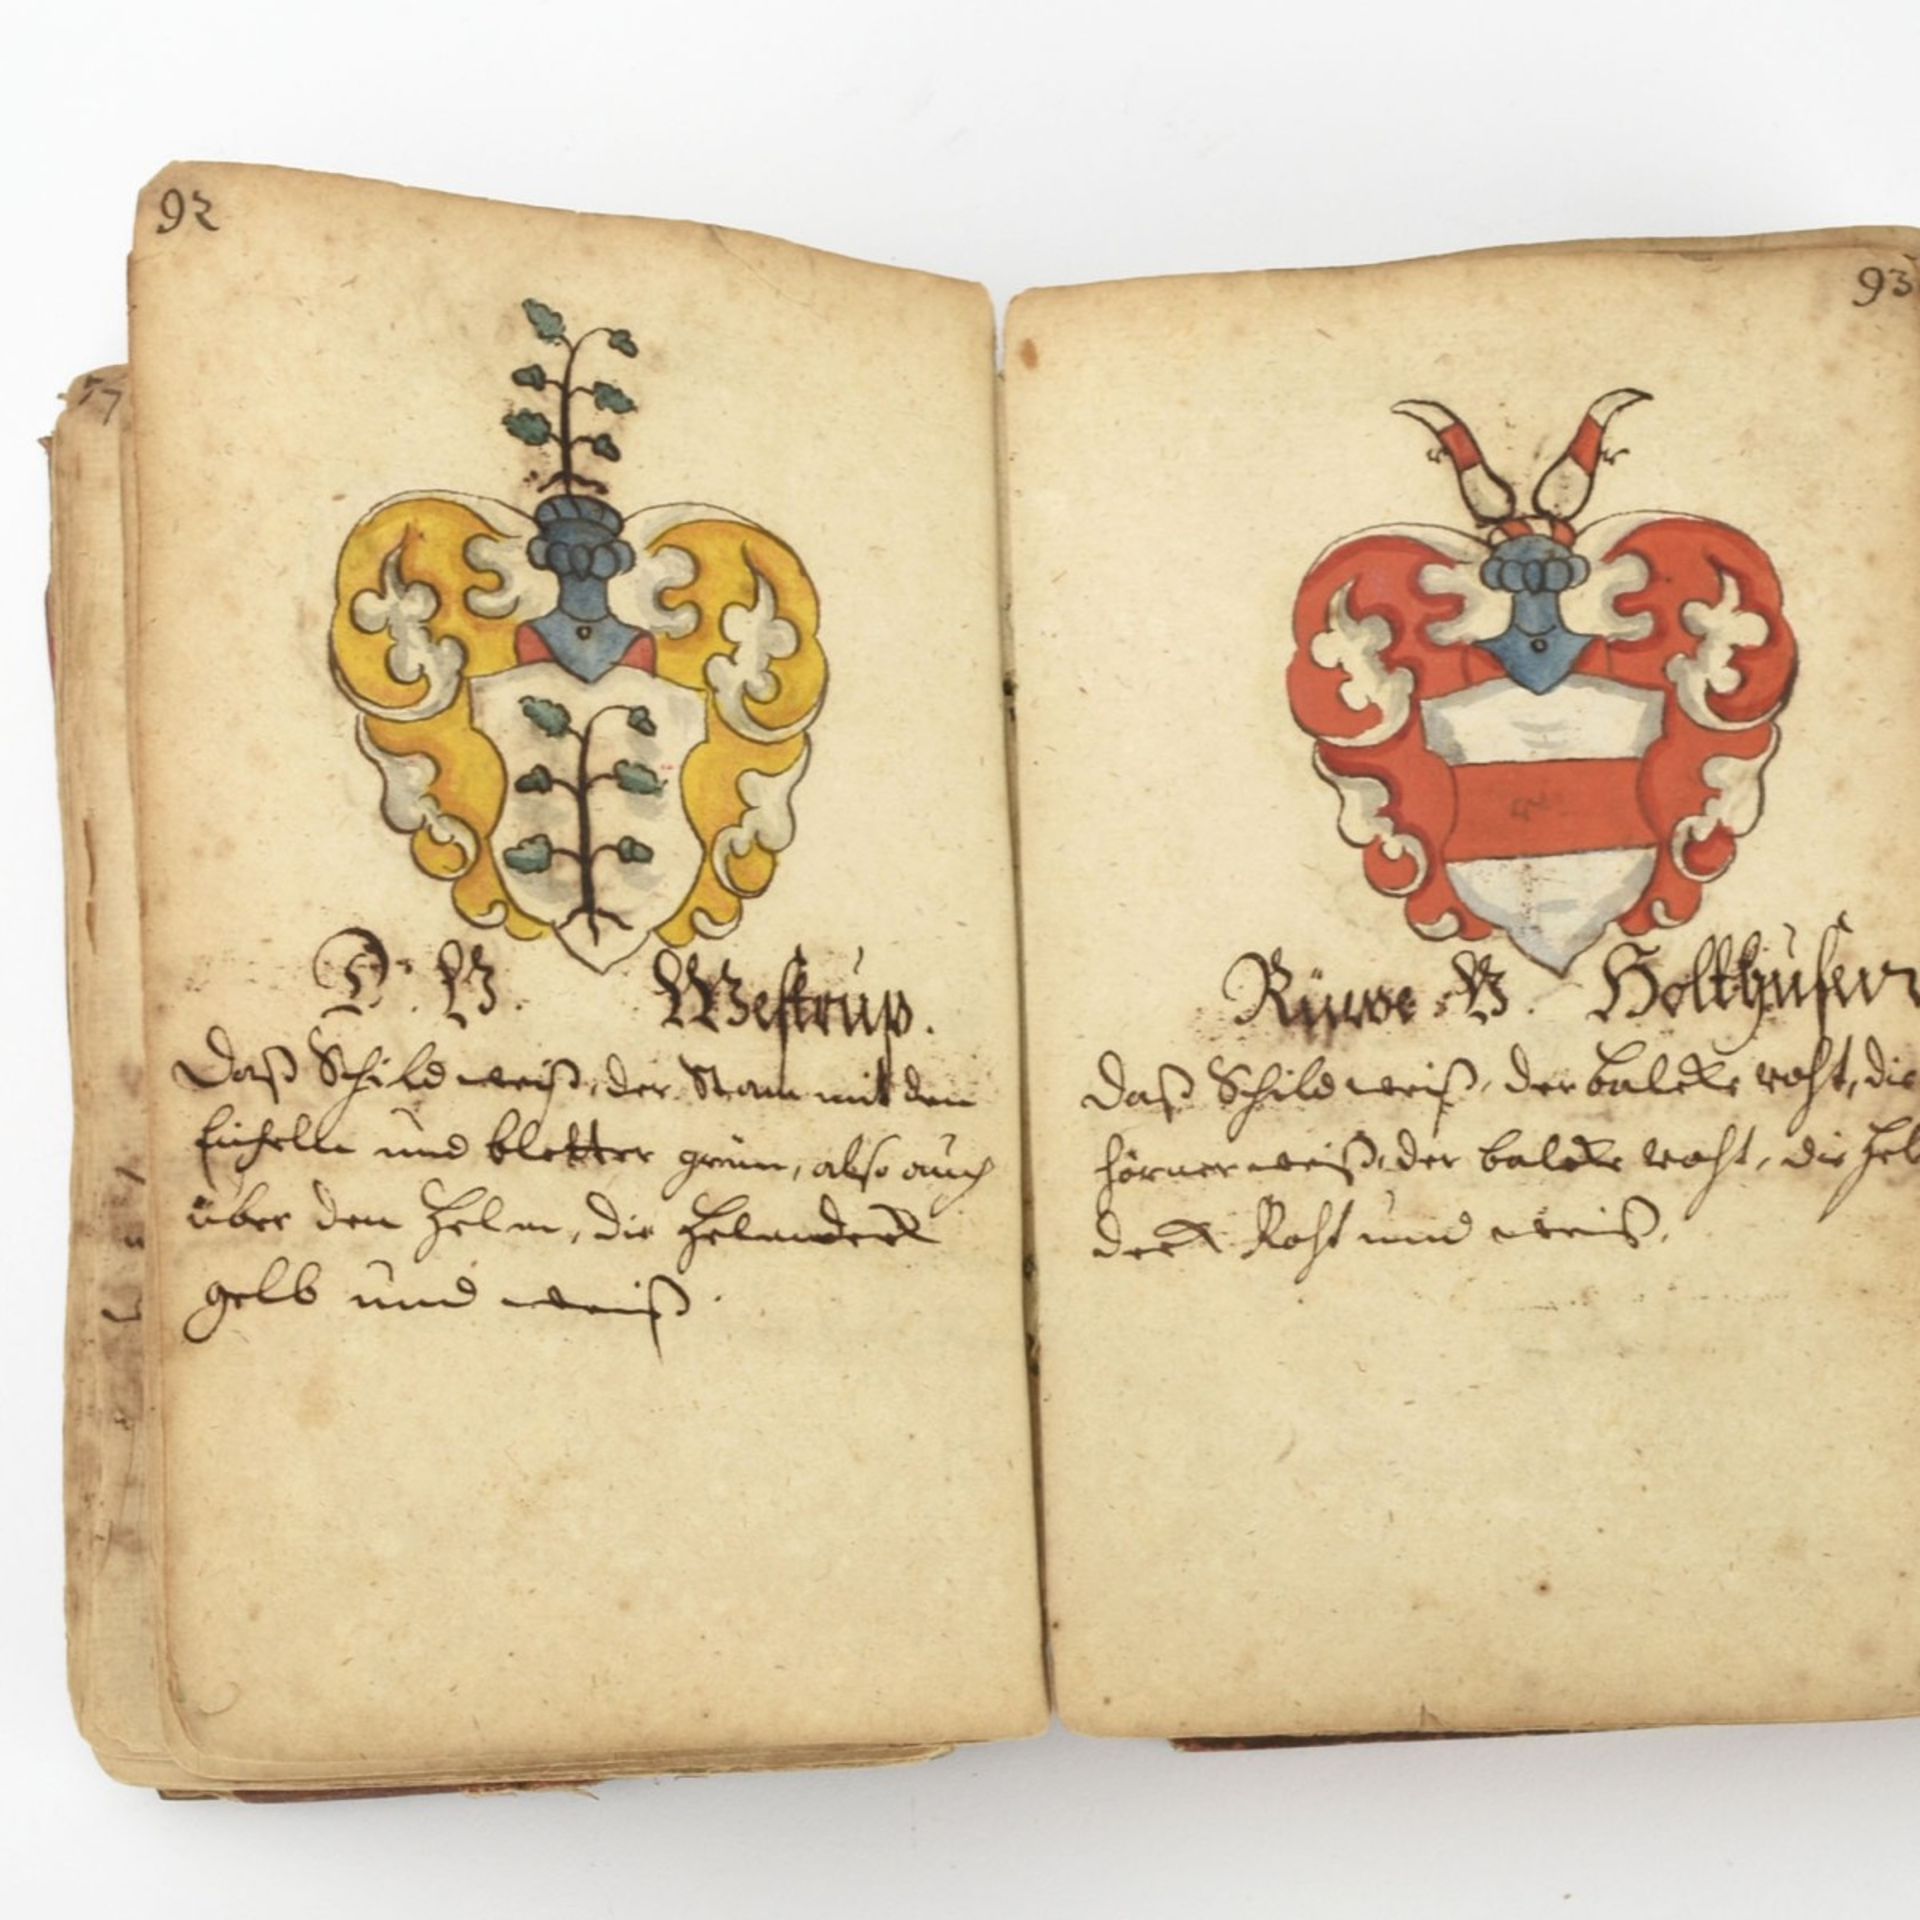 92
D. V. Westrup.
Daß Schild weiß, der Stam mit den
Eichelln und bletter grün, also auch
über den Helm, die Helmdeck
gelb und weiß.
93
Rüwe V. Holthusen
Daß Schild weiß, der balcke roht, die
hörner weiß, der balcke roht, die Hel
deck Roht und weiß.
77